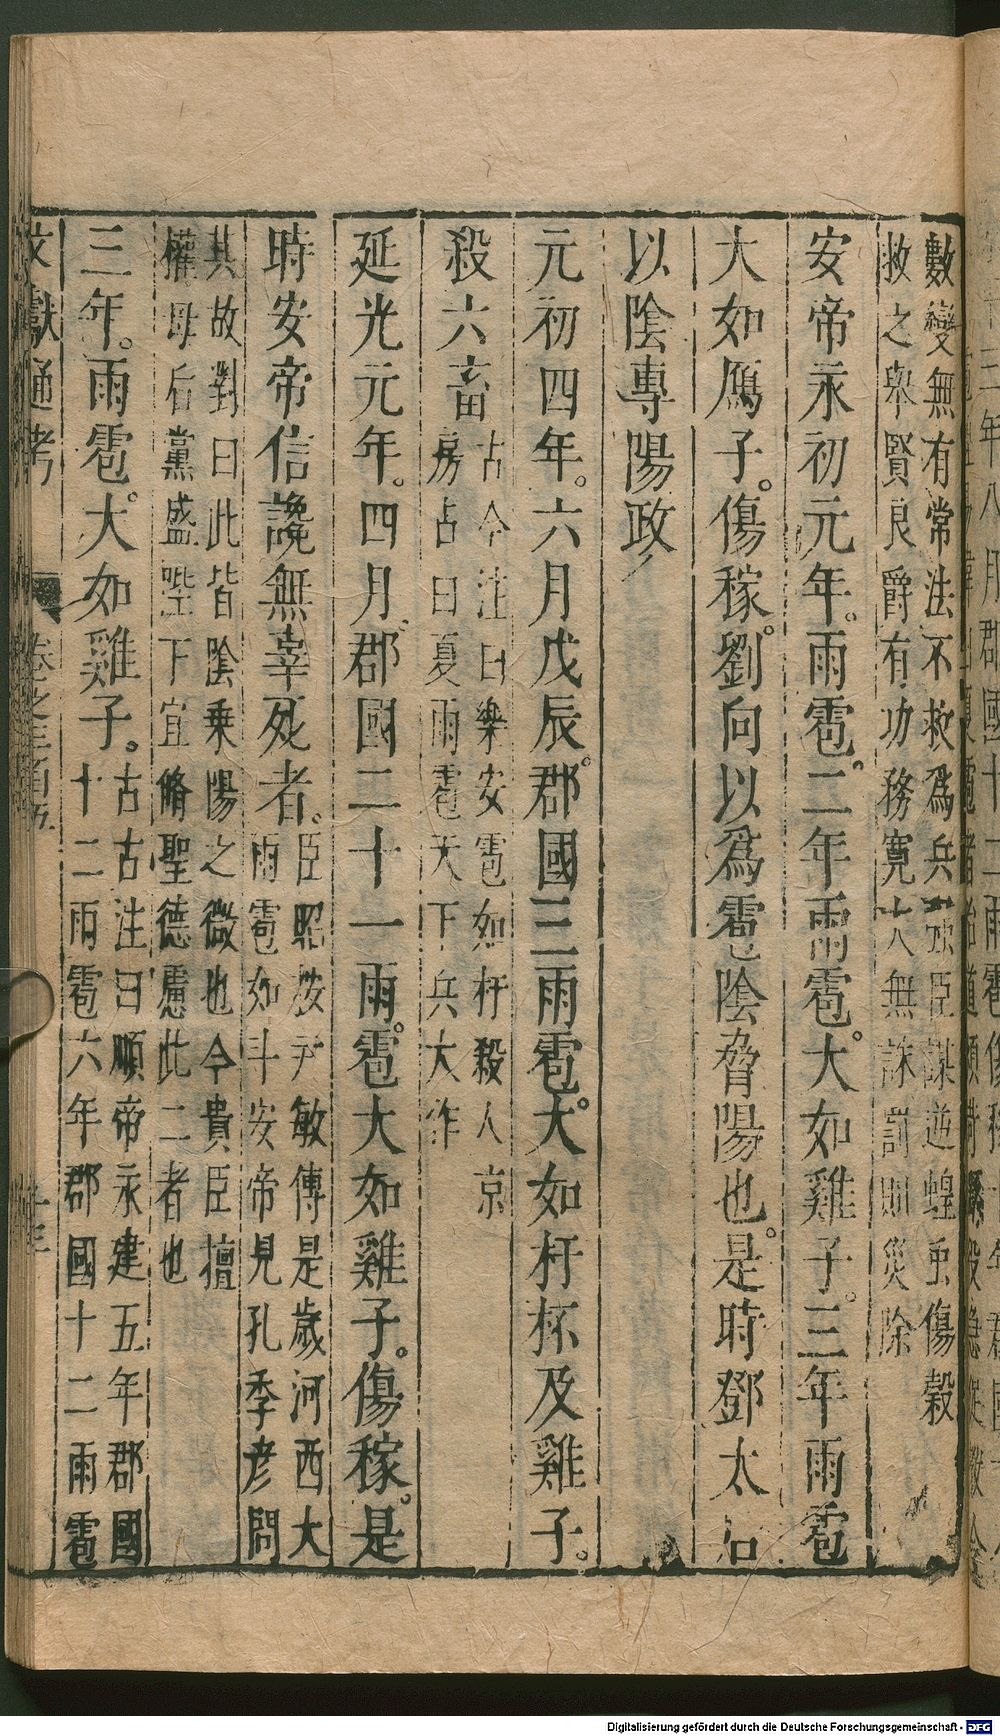 數變無有常法不救爲兵強臣謀逆蝗虫傷穀
救之舉賢良爵有功務寬大無誅罰則災除
安帝永初元年雨雹二年雨雹大如雞子三年雨雹
大如鴈子傷稼劉向以爲雹陰脅陽也是時鄧太后
以陰專陽政
元初四年六月戊辰郡國三雨雹大如杅杯及雞子
殺六畜
古今注曰樂安雹如杅殺人京
房占曰夏雨雹天下兵大作
延光元年四月郡國二十一雨雹大如雞子傷稼是
時安帝信讒無辜死者
臣昭按尹敏傳是歲河西大
雨雹如斗安帝見孔季彦問
其故對曰此皆陰乗陽之微也今貴臣擅
權母后黨盛陛下宜脩聖德慮此二者也
三年雨雹大如雞子
古古注曰順帝永建五年郡國
十二雨雹六年郡國十二雨雹
文獻通考 卷之三百五 十三
Digitalisierung gefördert durch die Deutsche Forschungsgemeinschaft - DFG